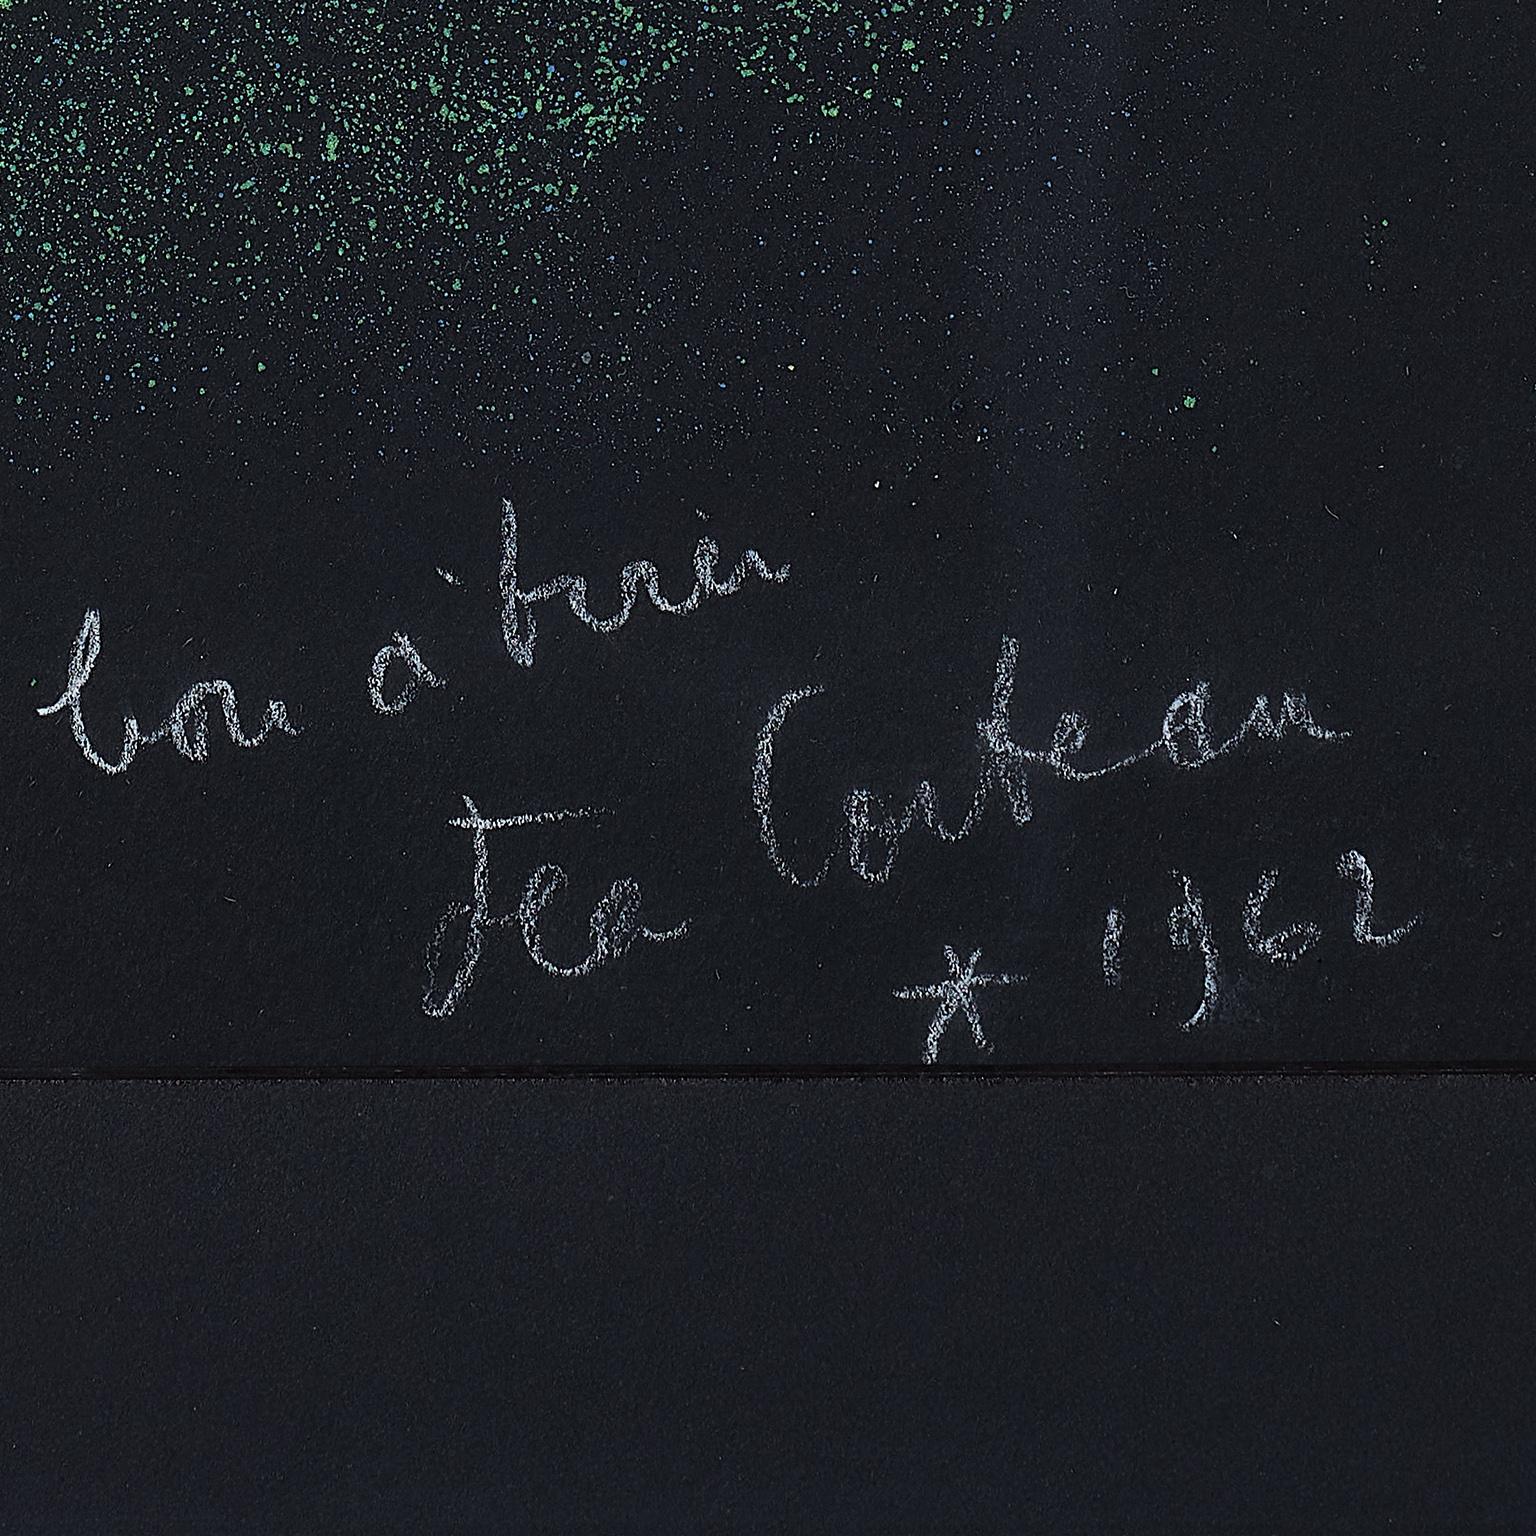 bon à tirer
Jean Cocteau
* 1962